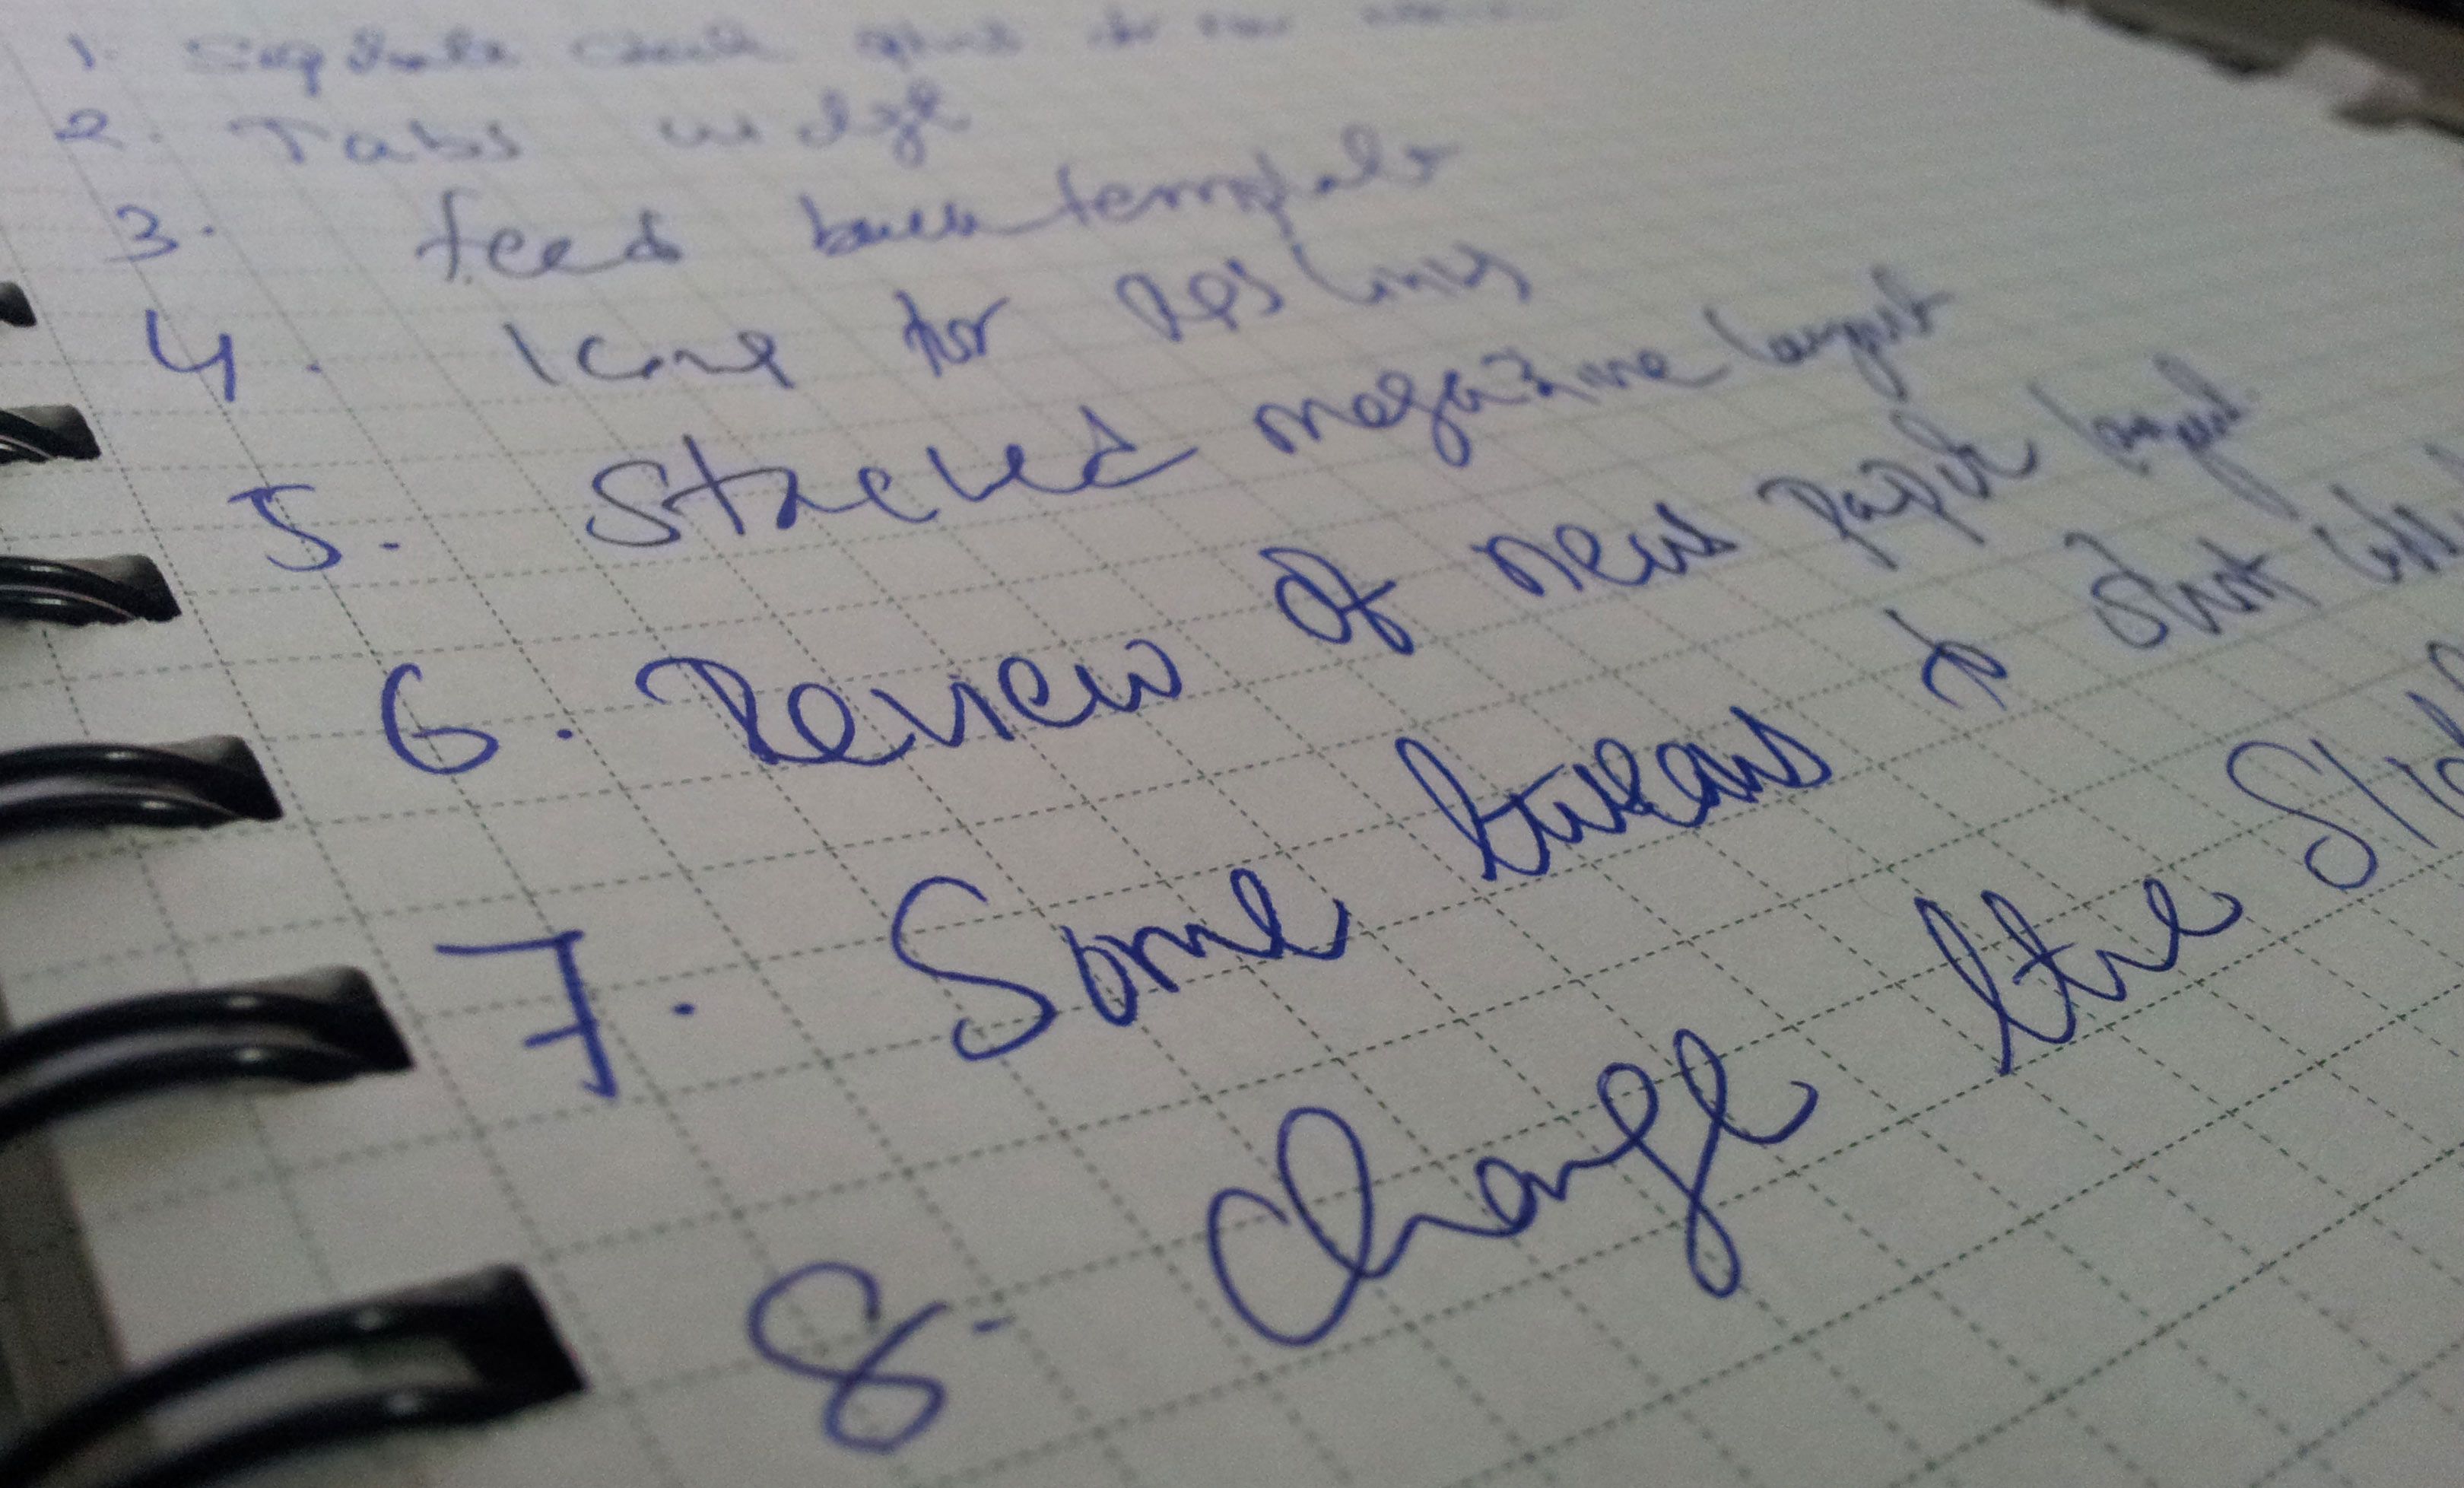 1. Seperate
2. Tabs widge
3. feed back template
4. Icone for RSS links
5. Stacked megazine layout
6. Review of news paper layout
7. Some tweaks to
8. Change the Slid